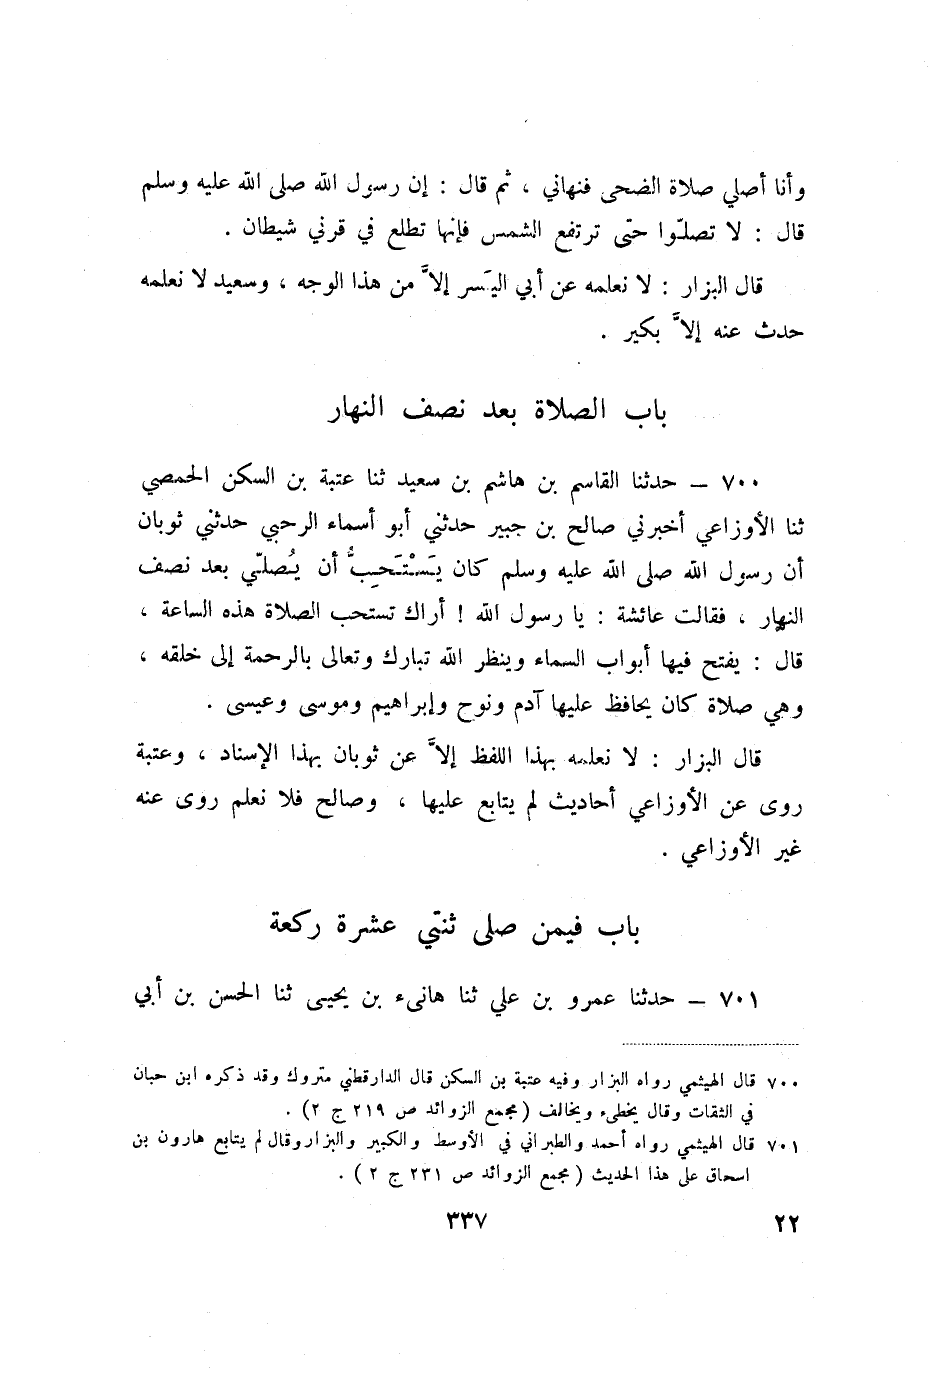 وأنا أصلي صلاة الضحى فنهاني ، ثم قال : إن رسول الله صلى الله عليه وسلم
قال : لا تصلّوا حتى ترتفع الشمس فإنها تطلع في قرني شيطان .
قال البزار : لا نعلمه عن أبي اليَسر إلاَّ من هذا الوجه ، وسعيد لا نعلمه
حدث عنه إلاَّ بكير .
باب الصلاة بعد نصف النهار
٧٠٠ – حدثنا القاسم بن هاشم بن سعيد ثنا عتبة بن السكن الحمصي
ثنا الأوزاعي أخبرني صالح بن جبير حدثني أبو أسماء الرحبي حدثني ثوبان
أن رسول الله صلى الله عليه وسلم كان يَسْتَحِبُّ أن يُصلّي بعد نصف
النهار ، فقالت عائشة : يا رسول الله ! أراك تستحب الصلاة هذه الساعة ،
قال : يفتح فيها أبواب السماء وينظر الله تبارك وتعالى بالرحمة إلى خلقه ،
وهي صلاة كان يحافظ عليها آدم ونوح وإبراهيم وموسى وعيسى .
قال البزار : لا نعلمه بهذا اللفظ إلاَّ عن ثوبان بهذا الإسناد ، وعتبة
روى عن الأوزاعي أحاديث لم يتابع عليها ، وصالح فلا نعلم روى عنه
غير الأوزاعي .
باب فيمن صلى ثنتي عشرة ركعة
٧٠١ – حدثنا عمرو بن علي ثنا هانىء بن يحيى ثنا الحسن بن أبي
٧٠٠ قال الهيثمي رواه البزار وفيه عتبة بن السكن قال الدارقطني متروك وقد ذكره ابن حبان
في الثقات وقال يخطىء ويخالف (مجمع الزوائد ص ٢١٩ ج ٢) .
٧٠١ قال الهيثمي رواه أحمد والطبراني في الأوسط والكبير والبزار وقال لم يتابع هارون بن
اسحاق على هذا الحديث ( مجمع الزوائد ص ٢٣١ ج ٢ ) .
٢٢ ٣٣٧